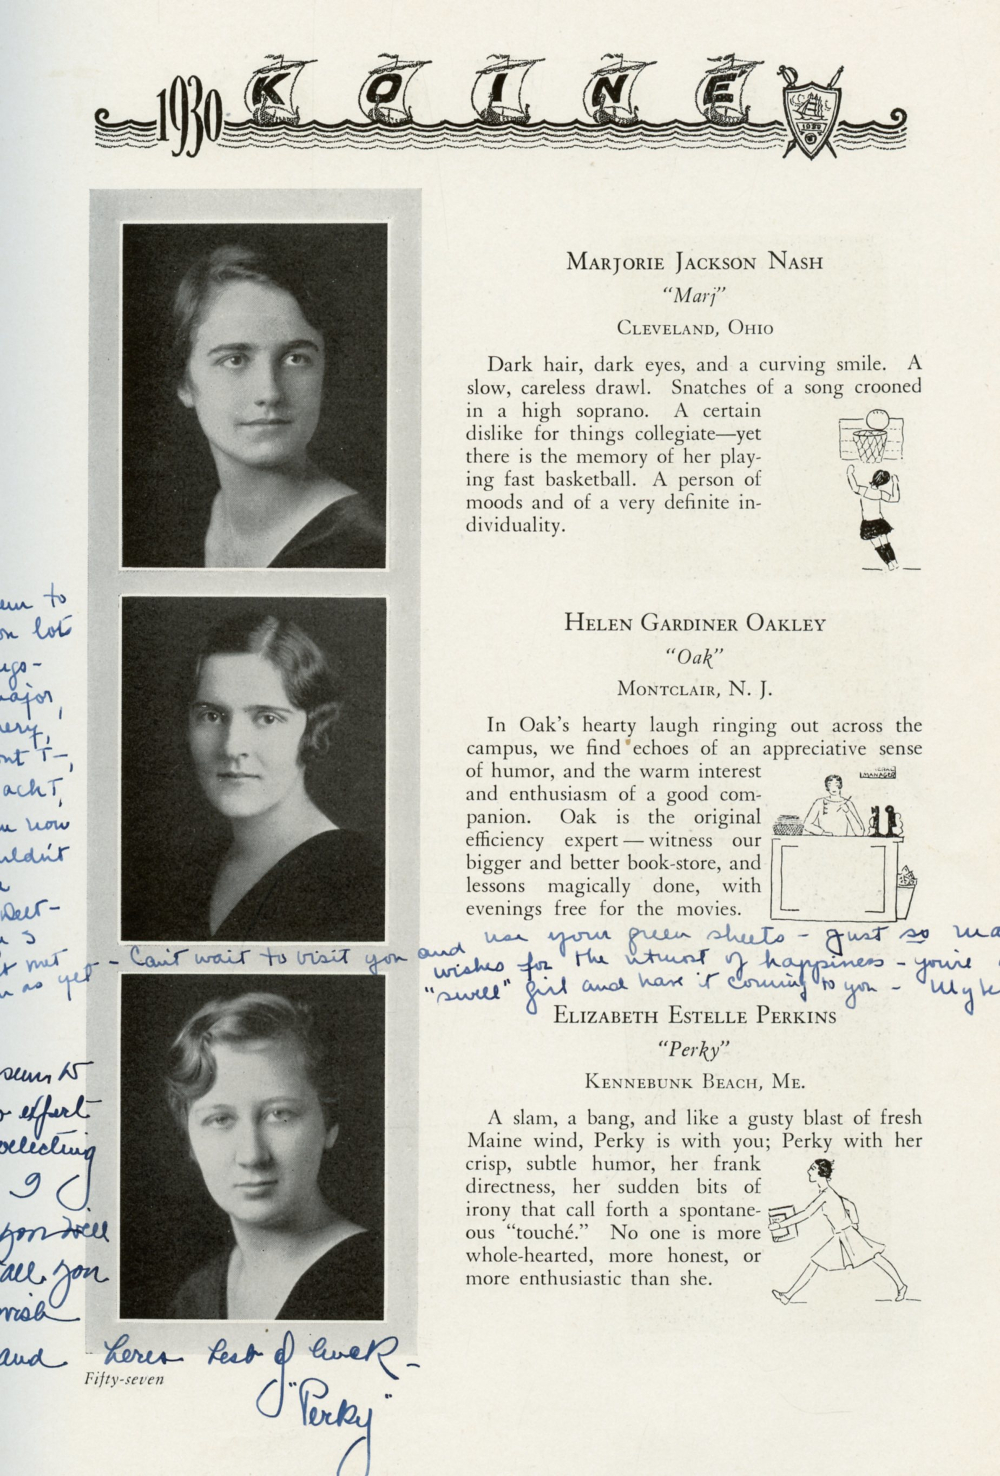 1930 KOINE
1930
MARJORIE JACKSON NASH
"Marj"
CLEVELAND, OHIO
Dark hair, dark eyes, and a curving smile. A
slow, careless drawl. Snatches of a song crooned
in a high soprano. A certain
dislike for things collegiate—yet
there is the memory of her play-
ing fast basketball. A person of
moods and of a very definite in-
dividuality.
HELEN GARDINER OAKLEY
"Oak"
MONTCLAIR, N. J.
In Oak's hearty laugh ringing out across the
campus, we find echoes of an appreciative sense
of humor, and the warm interest
and enthusiasm of a good com-
panion. Oak is the original
efficiency expert — witness our
bigger and better book-store, and
lessons magically done, with
evenings free for the movies.
MANAGER
to
lots
major,
now
met
as yet - Can't wait to visit you and use your green sheets - Just so
wishes for the utmost of happiness - you're
"swell" girl and have it coming to you - My
ELIZABETH ESTELLE PERKINS
"Perky"
KENNEBUNK BEACH, ME.
A slam, a bang, and like a gusty blast of fresh
Maine wind, Perky is with you; Perky with her
crisp, subtle humor, her frank
directness, her sudden bits of
irony that call forth a spontane-
ous "touché." No one is more
whole-hearted, more honest, or
more enthusiastic than she.
expert
I
you will
all you
wish
and heres best of luck -
"Perky"
Fifty-seven